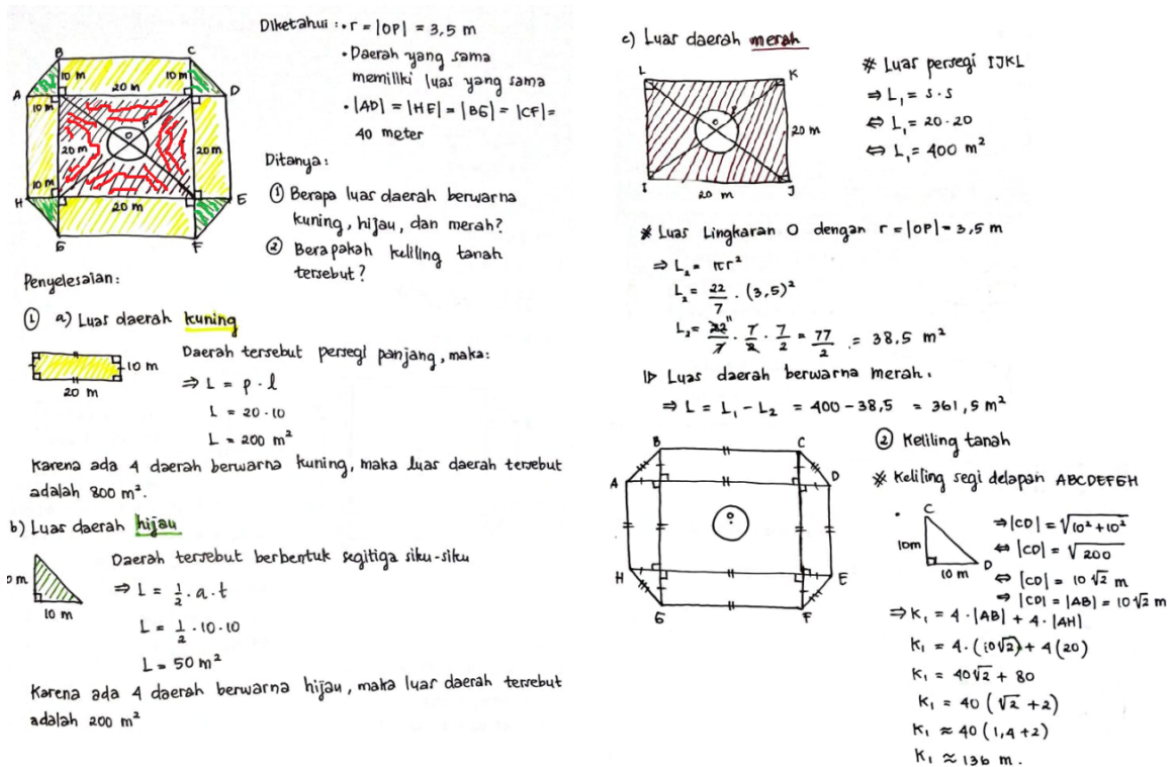 B
C
10 m
10 m
20 m
A
D
10 m
P
O
20 m
20 m
10 m
H
E
20 m
G
F
Diketahui : • r = |OP| = 3,5 m
• Daerah yang sama
memiliki luas yang sama
• |AD| = |HE| = |BG| = |CF| =
40 meter
Ditanya :
① Berapa luas daerah berwarna
kuning, hijau, dan merah?
② Berapakah keliling tanah
tersebut?
Penyelesaian :
① a) Luas daerah kuning
10 m
20 m
Daerah tersebut persegi panjang, maka:
⇒ L = p · l
L = 20 · 10
L = 200 m²
Karena ada 4 daerah berwarna kuning, maka luas daerah tersebut
adalah 800 m².
b) Luas daerah hijau
0 m
10 m
Daerah tersebut berbentuk segitiga siku-siku
⇒ L = 1/2 · a · t
L = 1/2 · 10 · 10
L = 50 m²
Karena ada 4 daerah berwarna hijau, maka luas daerah tersebut
adalah 200 m²
c) Luas daerah merah
L
K
O
P
20 m
I
J
20 m
* Luas persegi IJKL
⇒ L₁ = s · s
⇔ L₁ = 20 · 20
⇔ L₁ = 400 m²
* Luas Lingkaran O dengan r = |OP| = 3,5 m
⇒ L₂ = πr²
L₂ = 22/7 · (3,5)²
L₂ = 22/7 · 7/2 · 7/2 = 77/2 = 38,5 m²
11
▷ Luas daerah berwarna merah.
⇒ L = L₁ - L₂ = 400 - 38,5 = 361,5 m²
B
C
A
D
O
H
E
G
F
② Keliling tanah
* Keliling segi delapan ABCDEFGH
C
10m
10 m
D
⇒ |CD| = √(10² + 10²)
⇔ |CD| = √200
⇔ |CD| = 10√2 m
⇒ |CD| = |AB| = 10√2 m
⇒ K₁ = 4 · |AB| + 4 · |AH|
K₁ = 4 · (10√2) + 4(20)
K₁ = 40√2 + 80
K₁ = 40 (√2 + 2)
K₁ ≈ 40 (1,4 + 2)
K₁ ≈ 136 m.